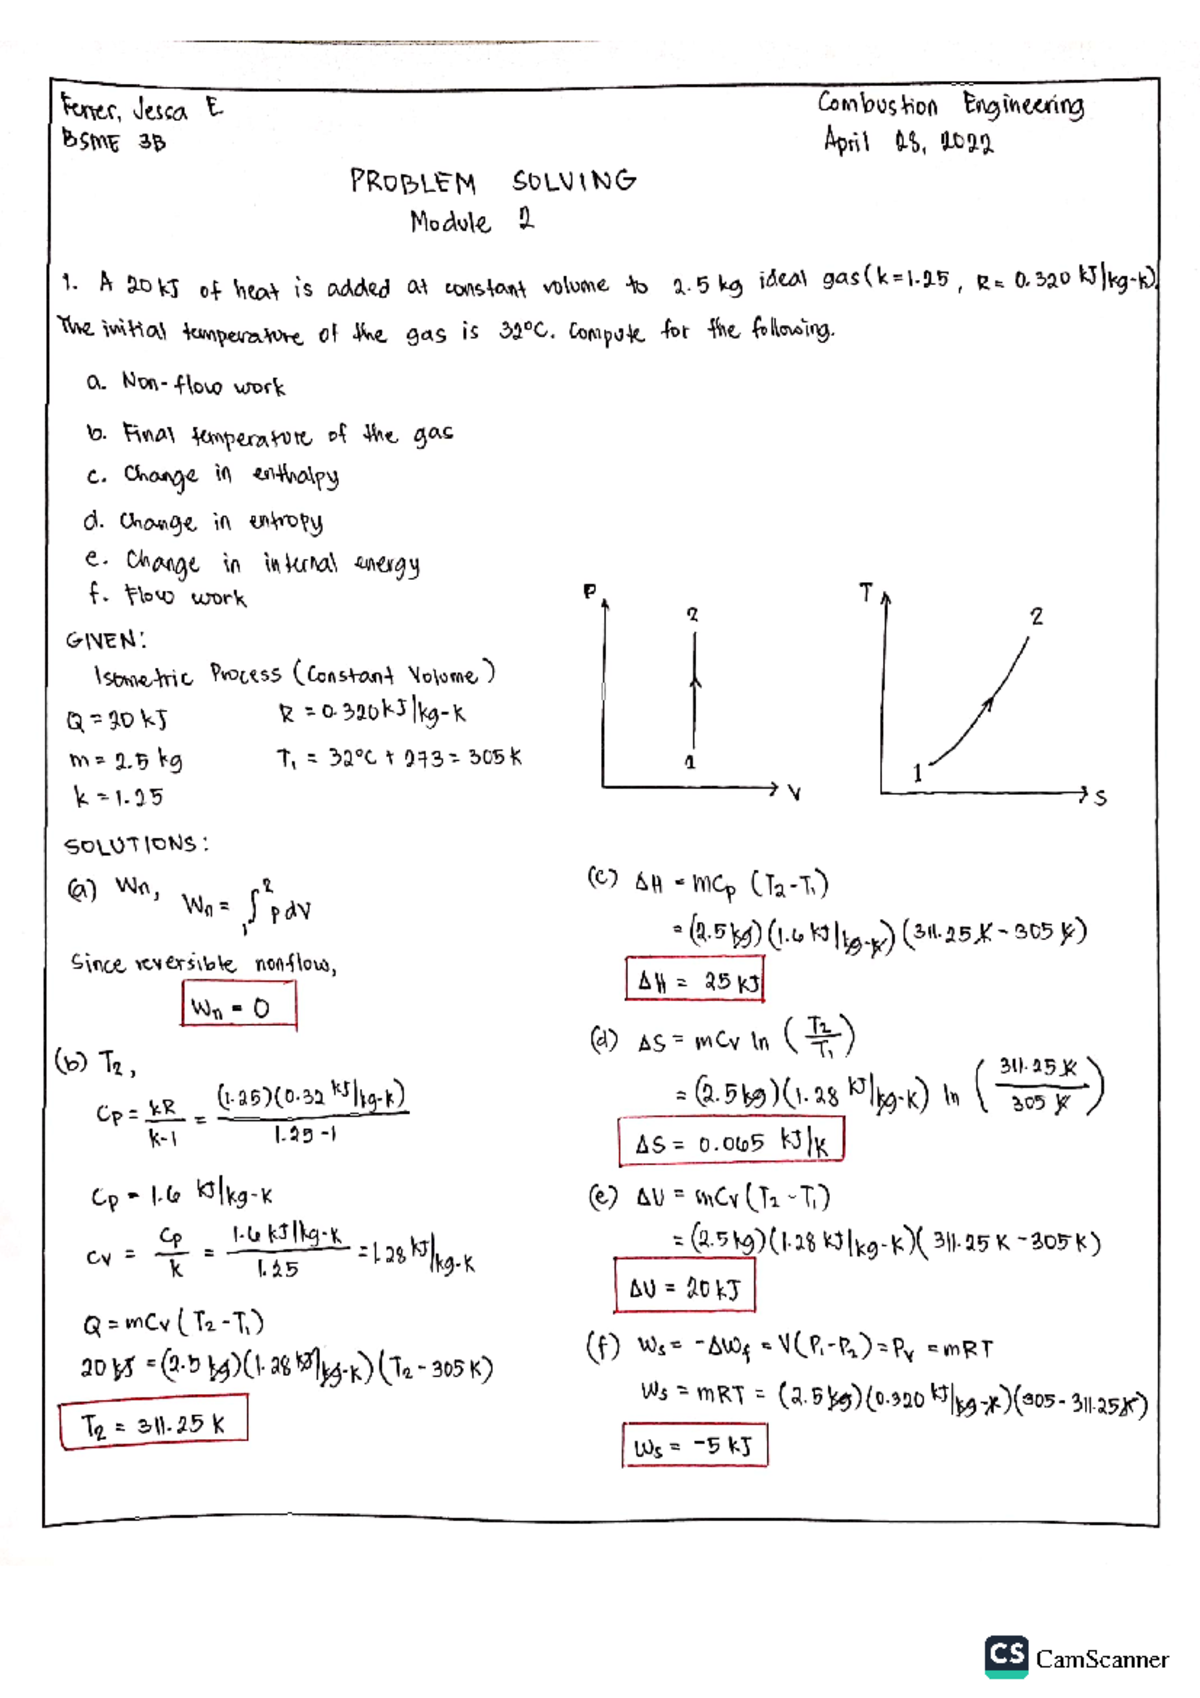 Ferrer, Jessa E.
BSME 3B
Combustion Engineering
April 28, 2022
PROBLEM SOLVING
Module 2
1. A 20 kJ of heat is added at constant volume to 2.5 kg ideal gas (k=1.25, R= 0.320 kJ/kg-K).
The initial temperature of the gas is 32°C. Compute for the following.
a. Non-flow work
b. Final temperature of the gas
c. Change in enthalpy
d. Change in entropy
e. Change in internal energy
f. Flow work
GIVEN:
Isometric Process (Constant Volume)
Q = 20 kJ
R = 0.320 kJ/kg-K
m = 2.5 kg
T₁ = 32°C + 273 = 305 K
k = 1.25
P
2
1
V
T
2
1
S
SOLUTIONS:
(a) Wn, Wn = ∫₁² pdV
Since reversible nonflow,
Wn = 0
(b) T₂,
Cp = kR/k-1 = (1.25)(0.32 kJ/kg-K)/1.25-1
Cp = 1.6 kJ/kg-K
Cv = Cp/k = 1.6 kJ/kg-K/1.25 = 1.28 kJ/kg-K
Q = mCv (T₂-T₁)
20 kJ = (2.5 kg)(1.28 kJ/kg-K)(T₂ - 305 K)
T₂ = 311.25 K
(c) ΔH = mCp (T₂-T₁)
= (2.5 kg)(1.6 kJ/kg-K)(311.25 K - 305 K)
ΔH = 25 kJ
(d) ΔS = mCv ln (T₂/T₁)
= (2.5 kg)(1.28 kJ/kg-K) ln (311.25 K/305 K)
ΔS = 0.065 kJ/K
(e) ΔU = mCv (T₂-T₁)
= (2.5 kg)(1.28 kJ/kg-K)(311.25 K - 305 K)
ΔU = 20 kJ
(f) Ws = -ΔWf = V(P₁-P₂) = Pv = mRT
Ws = mRT = (2.5 kg)(0.320 kJ/kg-K)(305 - 311.25 K)
Ws = -5 kJ
CS CamScanner